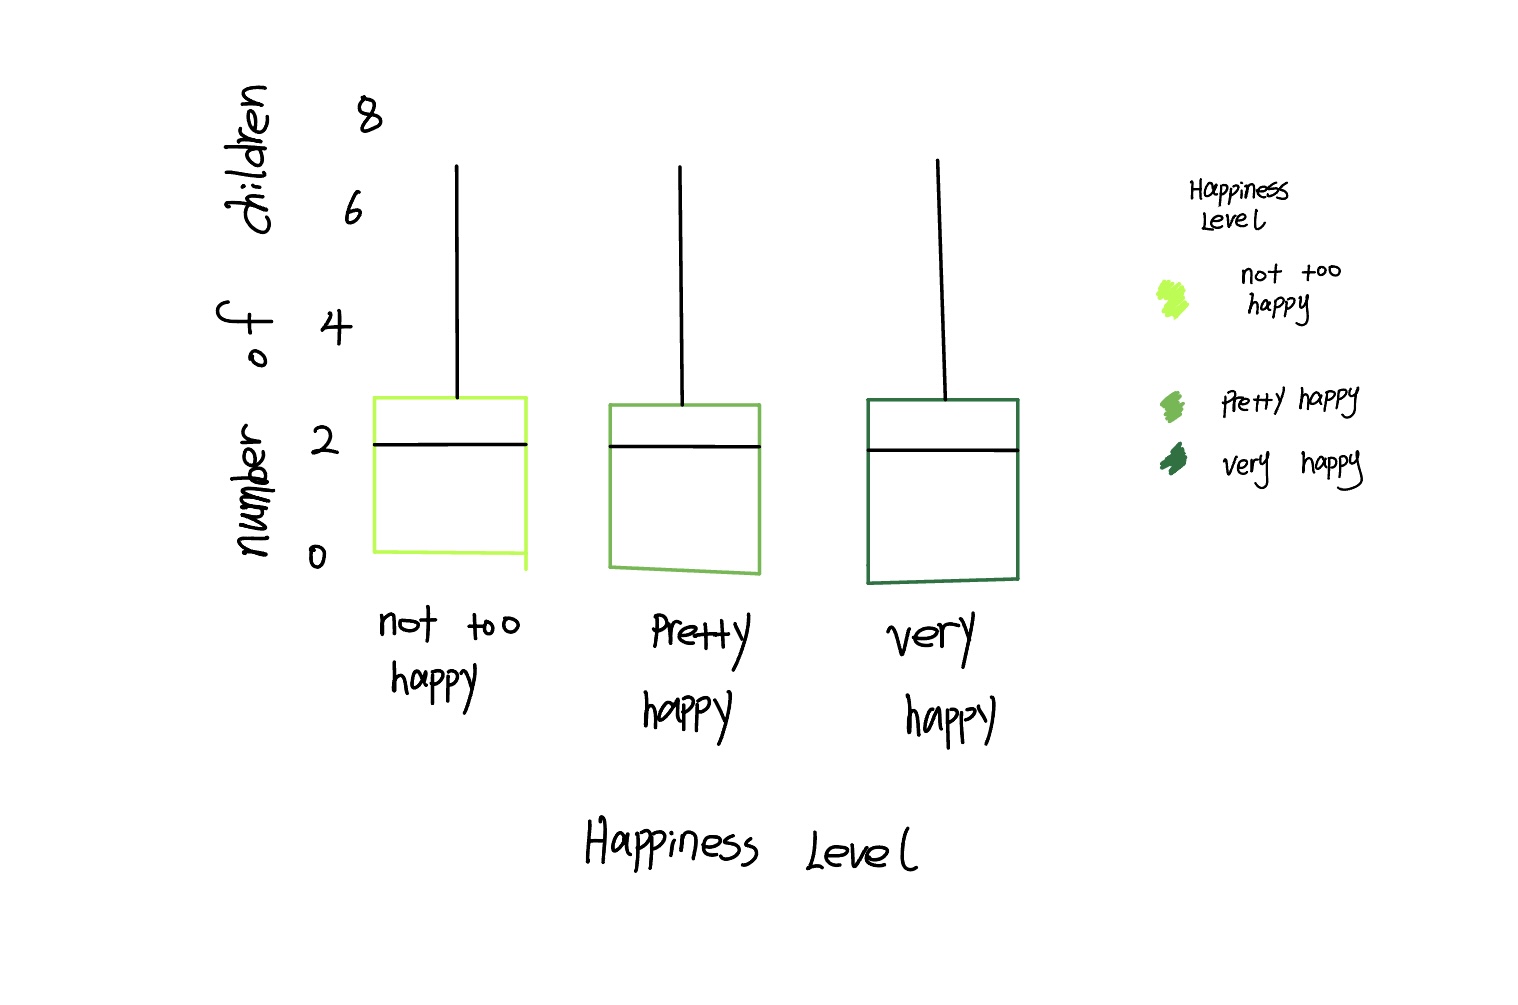 number of children
8
6
4
2
0
not too
happy
Pretty
happy
very
happy
Happiness Level
Happiness
Level
not too
happy
Pretty happy
very happy